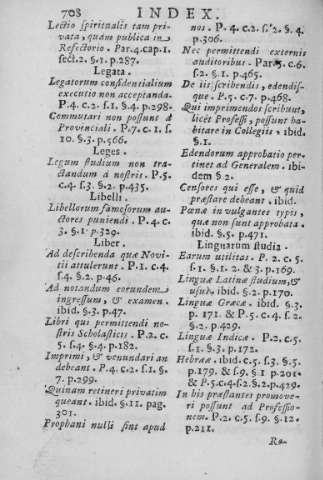 708 INDEX.
Lectio spiritualis tam pri-
vata, quàm publica in
Refectorio. Par.4.cap.1.
sect.2. §.1. p.287.
Legata.
Legatorum confidentialium
executio non acceptanda.
P.4. c.2. s.1. §.4. p.298.
Commutari non possunt à
Provinciali. P.7. c.1. s.
10. §.3. p.566.
Leges.
Legum studium non tra-
ctandum à nostris. P.5.
c.4. s.3. §.2. p.435.
Libelli.
Libellorum famosorum au-
ctores puniendi. P.4. c.
3. §.1. p.329.
Liber.
Ad describenda quæ Novi-
tii attulerunt. P.1. c.4.
s.4. §.2. p.46.
Ad notandum eorundem
ingressum, & examen.
ibid. §.3. p.47.
Libri qui permittendi no-
stris Scholasticis. P.2. c.
5. s.4. §.4. p.182.
Imprimi, & venundari an
debeant. P.4. c.2. s.1. §.
7. p.299.
Quinam retineri privatim
queant. ibid. §.11. pag.
301.
Prophani nulli sint apud
nos. P.4. c.2. s.2. §.4.
p.306.
Nec permittendi externis
auditoribus. Par.5. c.6.
s.2. §.1. p.465.
De iis scribendis, edendis-
que. P.5. c.7. p.468.
Qui imprimendos scribunt,
licèt Professi, possunt ha-
bitare in Collegiis, ibid.
§.1.
Edendorum approbatio per-
tinet ad Generalem. ibi-
dem §.2.
Censores qui esse, & quid
præstare debeant. ibid.
Pœnæ in vulgantes typis,
quæ non sunt approbata.
ibid. §.5. p.471.
Linguarum studia.
Earum utilitas. P.2. c.5.
s.1. §.1. 2. & 3. p.169.
Linguæ Latinæ studium, &
usus. ibid. §.2. p.170.
Linguæ Græcæ. ibid. §.3.
p.171. & P.5. c.4. s.2.
§.2. p.429.
Linguæ Indicæ. P.2. c.5.
s.1. §.3. p.172.
Hebrææ. ibid. c.5. s.3. §.5.
p.179. & s.9. §.1. p.201.
& P.5. c.4. s.2. §.2. p.429.
In his præstantes promove-
ri possunt ad Professio-
nem. P.2. c.5. s.9. §.12.
p.211.
Re-